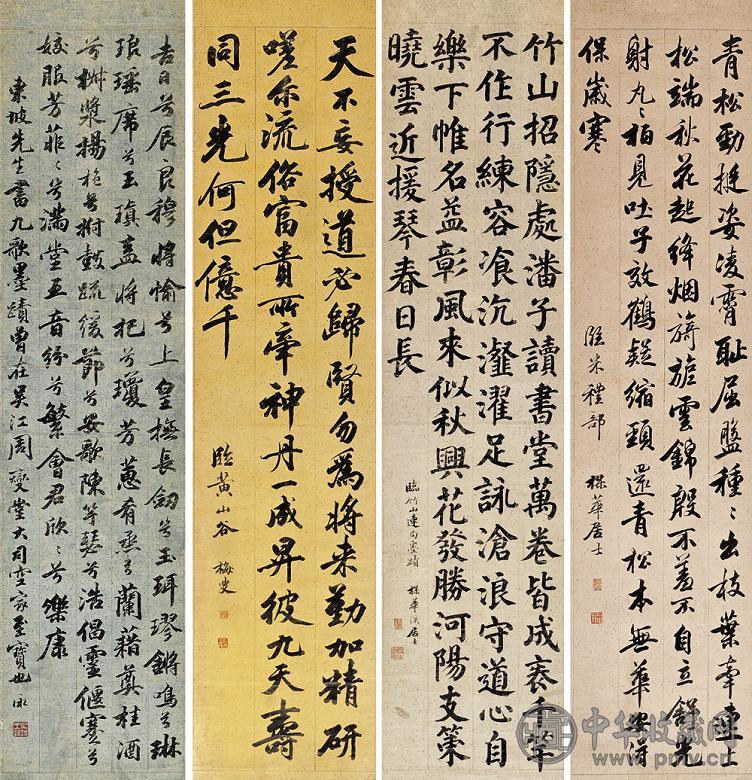 青松勁挺姿凌霄恥屈盤種〻出枝葉牽連上
松端秋花起絳烟旖旎雲錦殷不羞不自立舒光
射丸〻柏見吐子效鶴疑縮頸還青松本無華安得
保歲寒
臨米禮部 楳華居士
竹山招隱處潘子讀書堂萬卷皆成袠千竿
不作行練容飡沆瀣濯足詠滄浪守道心自
樂下帷名益彰風來似秋興花發勝河陽支策
曉雲近援琴春日長
臨竹山連句墨蹟 楳華溪居士
天不妄授道必歸賢勿爲將来勤加精研
嗟尓流俗富貴所牽神丹一成昇彼九天壽
同三光何但億千
臨黃山谷 梅叟
吉日兮辰良穆將愉兮上皇撫長劒兮玉珥璆鏘鳴兮琳
琅瑤席兮玉瑱盍將把兮瓊芳蕙肴烝兮蘭藉奠桂酒
兮椒漿揚枹兮拊鼓疏緩節兮安歌陳竽瑟兮浩倡靈偃蹇兮
姣服芳菲〻兮滿堂五音紛兮繁會君欣〻兮樂康
東坡先生書九歌墨蹟曾在吳江周燮堂大司空家至寶也 泳
中华收藏网
www.pmv.cn